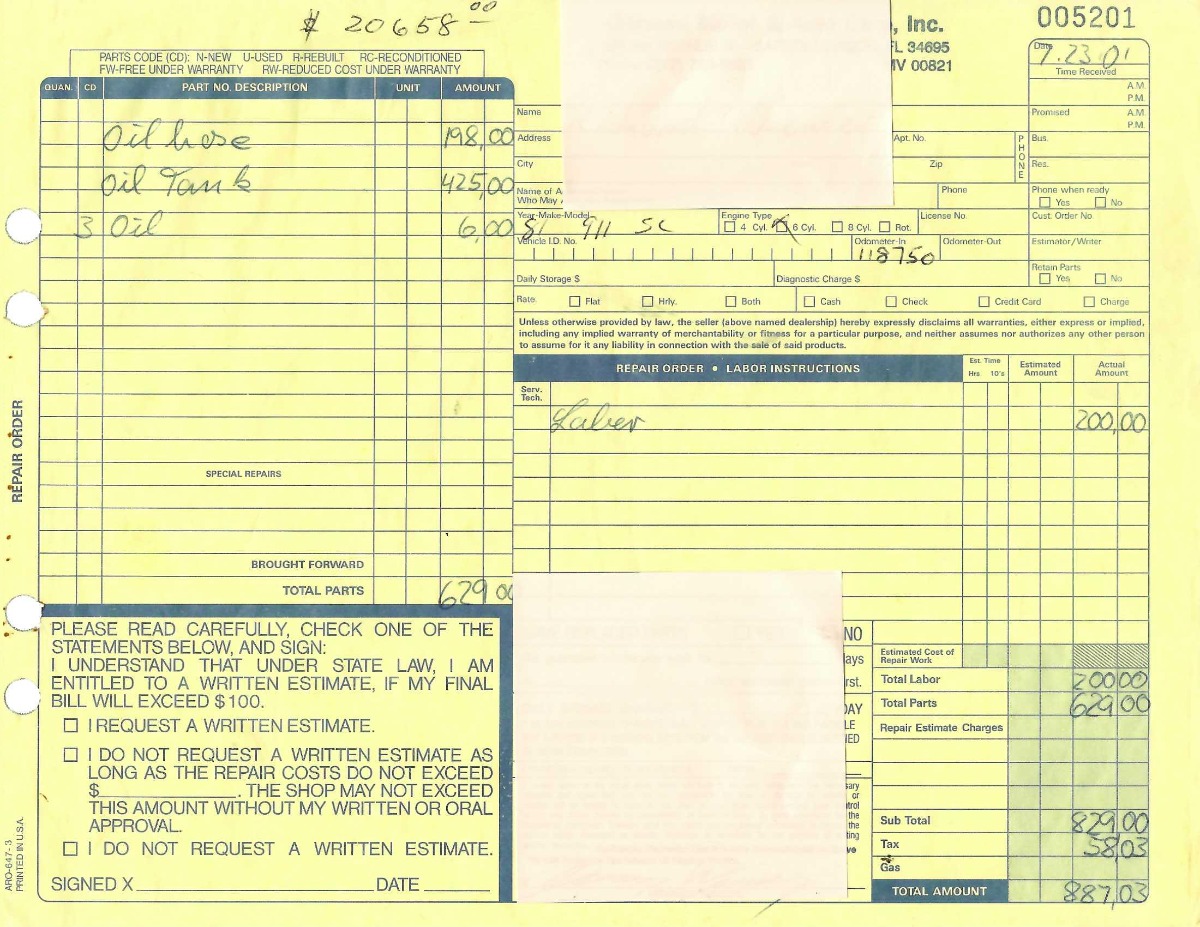 $ 20658 00
, Inc.
FL 34695
MV 00821
005201
Date
7.23 01
Time Received
A.M.
P.M.
Promised
A.M.
P.M.
PARTS CODE (CD): N-NEW U-USED R-REBUILT RC-RECONDITIONED
FW-FREE UNDER WARRANTY RW-REDUCED COST UNDER WARRANTY
QUAN. CD PART NO. DESCRIPTION UNIT AMOUNT
Oil hose 198,00
Oil Tank 425,00
3 Oil 6,00
SPECIAL REPAIRS
BROUGHT FORWARD
TOTAL PARTS 629 00
Name
Address Apt. No.
City Zip
PHONE
Bus.
Res.
Name of A
Who May
Phone
Phone when ready
Yes No
Year-Make-Model
81 911 SC
Engine Type
4 Cyl. X 6 Cyl. 8 Cyl. Rot.
License No.
Cust. Order No.
Vehicle I.D. No.
Odometer-In
118750
Odometer-Out
Estimator/Writer
Daily Storage $ Diagnostic Charge $
Retain Parts
Yes No
Rate. Flat Hrly. Both Cash Check Credit Card Charge
Unless otherwise provided by law, the seller (above named dealership) hereby expressly disclaims all warranties, either express or implied,
including any implied warranty of merchantability or fitness for a particular purpose, and neither assumes nor authorizes any other person
to assume for it any liability in connection with the sale of said products.
REPAIR ORDER • LABOR INSTRUCTIONS
Est. Time
Hrs 10's
Estimated
Amount
Actual
Amount
Serv.
Tech.
Laber 200,00
REPAIR ORDER
PLEASE READ CAREFULLY, CHECK ONE OF THE
STATEMENTS BELOW, AND SIGN:
I UNDERSTAND THAT UNDER STATE LAW, I AM
ENTITLED TO A WRITTEN ESTIMATE, IF MY FINAL
BILL WILL EXCEED $100.
I REQUEST A WRITTEN ESTIMATE.
I DO NOT REQUEST A WRITTEN ESTIMATE AS
LONG AS THE REPAIR COSTS DO NOT EXCEED
$ . THE SHOP MAY NOT EXCEED
THIS AMOUNT WITHOUT MY WRITTEN OR ORAL
APPROVAL.
I DO NOT REQUEST A WRITTEN ESTIMATE.
SIGNED X DATE
ARO-647-3
PRINTED IN U.S.A.
NO
ays
rst.
DAY
LE
IED
sary
or
trol
the
the
ting
ve
Estimated Cost of
Repair Work
Total Labor 200 00
Total Parts 629 00
Repair Estimate Charges
Sub Total 829 00
Tax 58,03
Gas
TOTAL AMOUNT 887,03